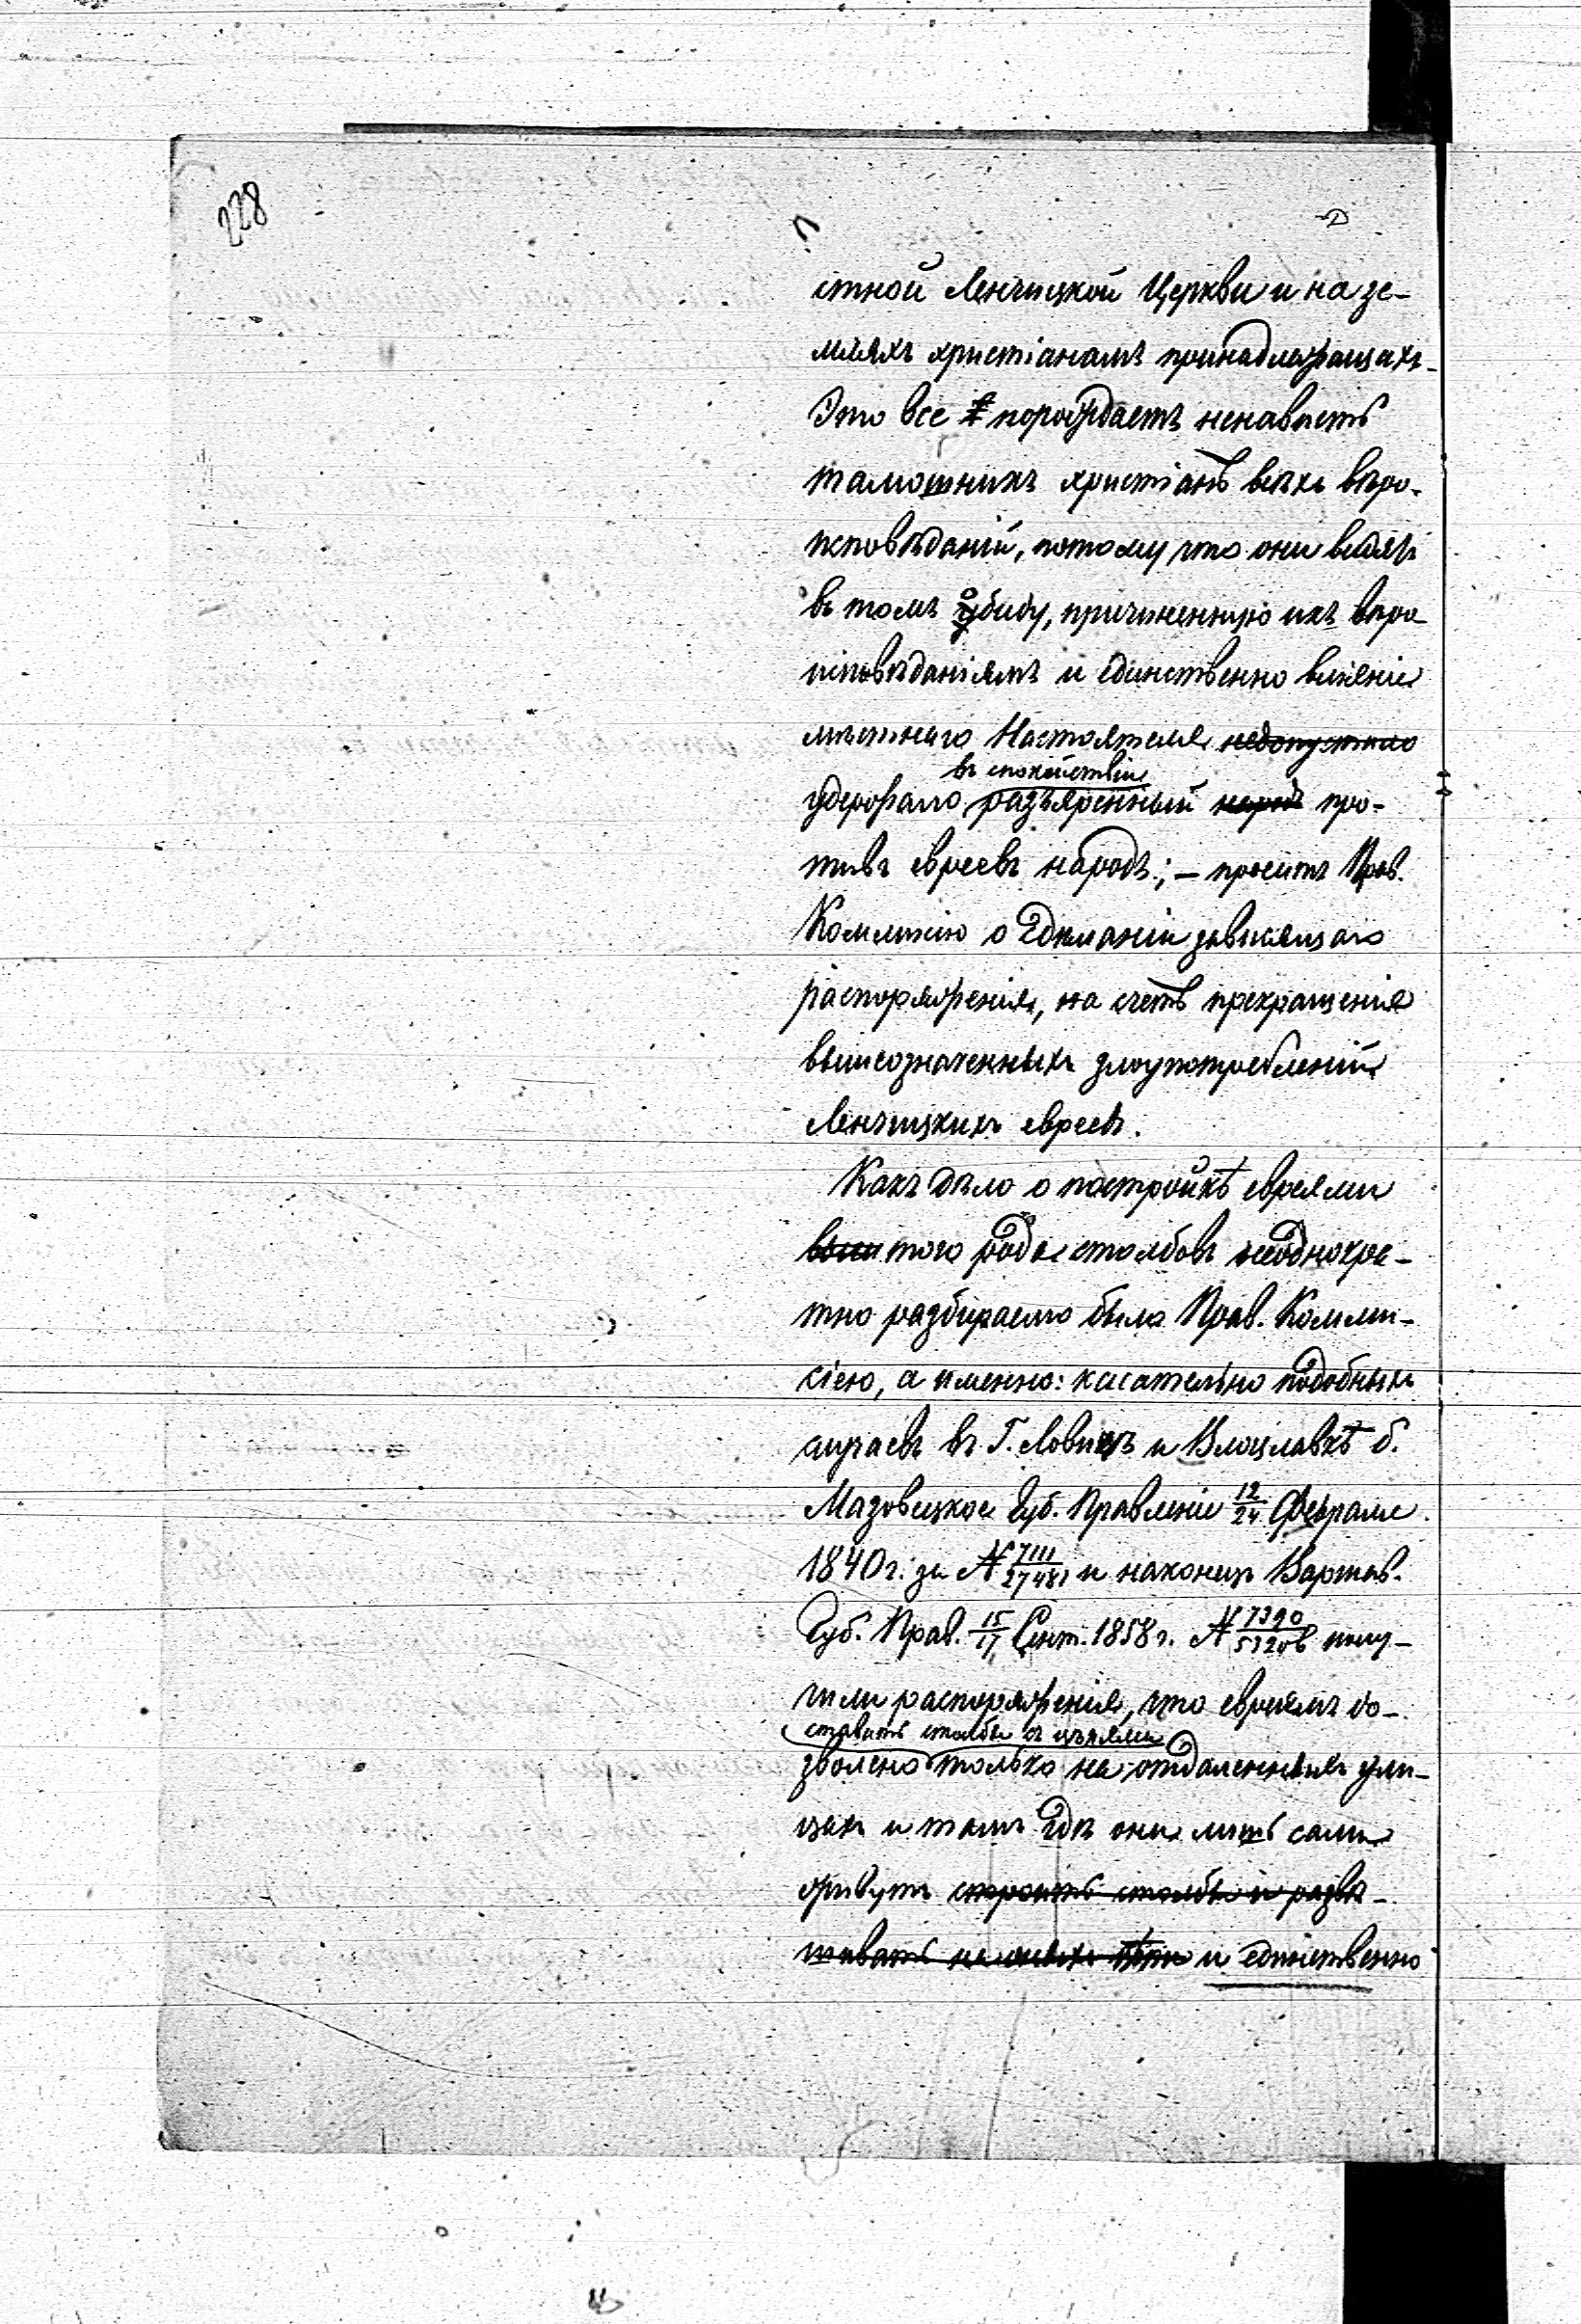 228
стной Ленчицкой Церкви и на зе-
мляхъ христіанамъ принадлежащихъ.
Это все порождаетъ ненависть
тамошнихъ христіанъ всѣхъ вѣро-
исповѣданій, потому что они видятъ
въ томъ обиду, причиненную ихъ вѣро-
исповѣданіямъ и единственно вліяніе
мѣстнаго Настоятеля недопустило
въ спокойствіи
удержало разъяренный народъ про-
тивъ евреевъ народъ; – проситъ Прав.
Коммисію о сдѣланіи зависящаго
распоряженія, на счетъ прекращенія
вышеозначенныхъ злоупотребленій
Ленчицкихъ евреевъ.
Какъ дѣло о постройкѣ евреями
выш того рода столбовъ неоднокра-
тно разбираемо было Прав. Комми-
сіею, а именно: касательно подобныхъ
случаевъ въ Г. Ловичѣ и Влоцлавкѣ б.
Мазовецкое Губ. Правленіе 12/24 Февраля
1840 г. за N 7111/27481 и наконецъ Варшав.
Губ. Прав. 15/17 Сент. 1858 г. N 7390/51206 полу-
чили распоряженія, что евреямъ до-
ставить столбы съ цѣпями
зволено только на отдаленныхъ ули-
цахъ и тамъ гдѣ они лишь сами
живутъ строить столбы и развѣ-
шивать на нихъ и единственно